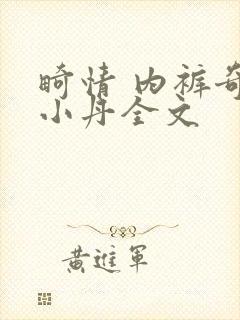 畸情 内裤奇
小丹全文
黄進軍